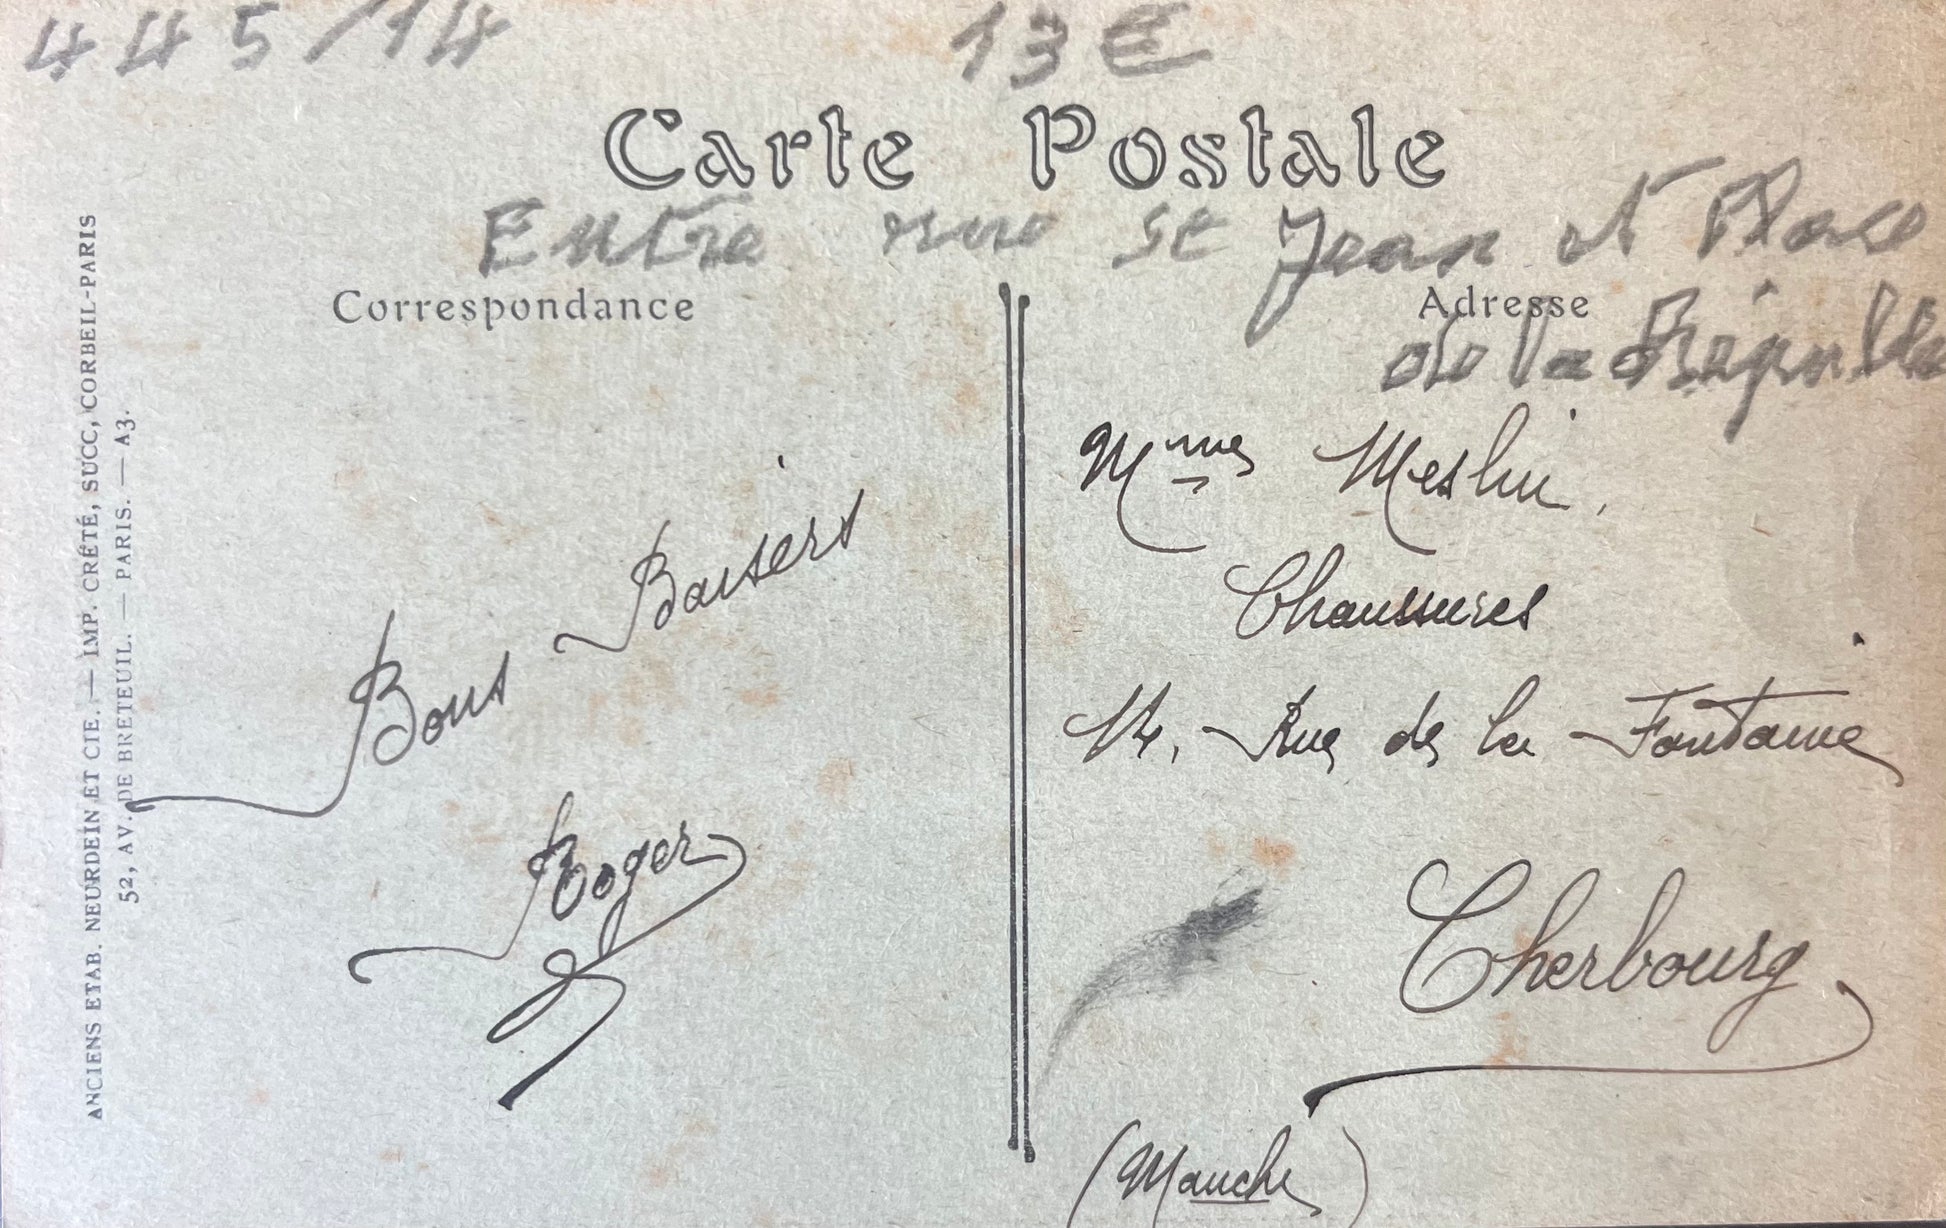 445/14 13 €
Carte Postale
Entre rue St Jean et Place
de la Républi
Correspondance
Adresse
Bons Baisers
Roger
Mmes Meslin.
Chaussures
14, Rue de la Fontaine
Cherbourg
(Manche)
ANCIENS ETAB. NEURDEIN ET CIE. — IMP. CRÉTÉ, SUCC, CORBEIL-PARIS
52, AV. DE BRETEUIL. — PARIS. — A3.